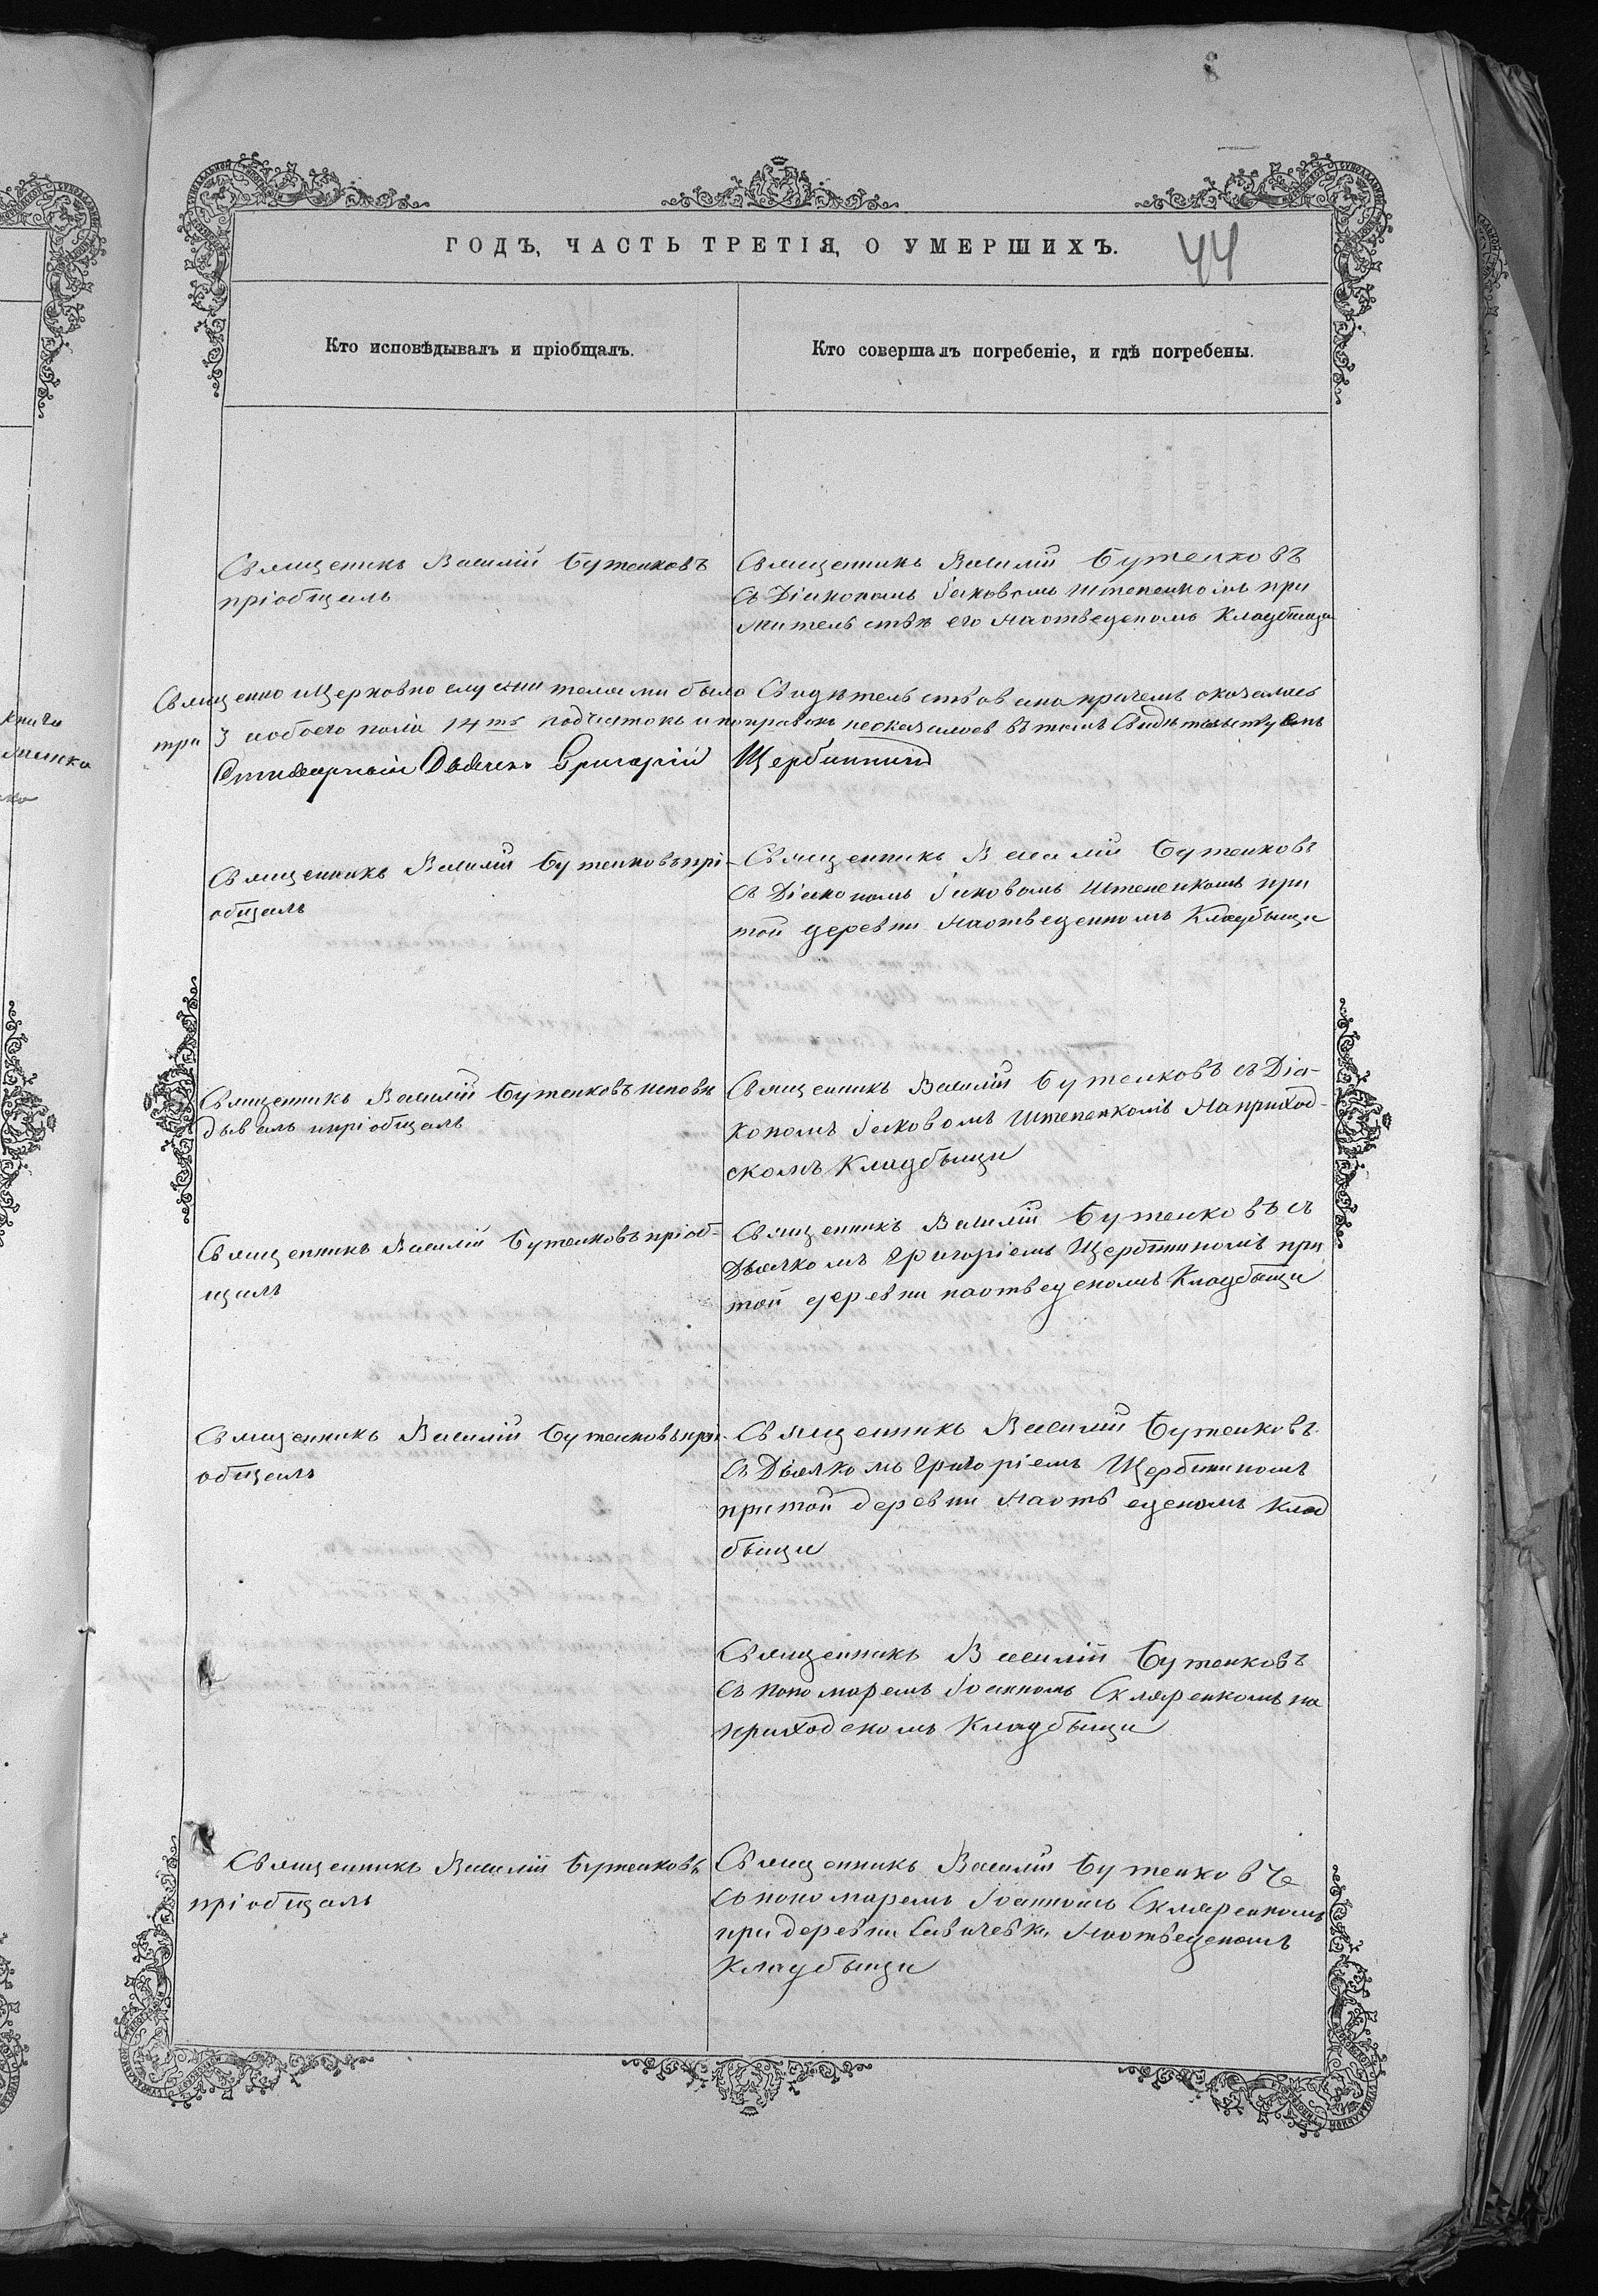 ГОДЪ, ЧАСТЬ ТРЕТІЯ, О УМЕРШИХЪ.
44
Кто исповѣдывалъ и пріобщалъ.
Кто совершалъ погребеніе, и гдѣ погребены.
Священикъ Василій Бутенковъ
пріобщалъ
Священникъ Василій Бутенковъ
съ Діакономъ Іаковомъ Штепенкомъ при
жительствѣ его наотведеномъ Кладбища
Священно ицерковно служителями было Свидѣтельствовано причемъ оказалось
три 3 иобоего пола 14 подчистокъ ипоправокъ неоказалось вътомъ Свидѣтельствуемъ
Стихарный Дьячекъ Григорій Щербининъ
Священникъ Василій Бутенковъ прі-
общалъ
Священникъ Василій Бутенковъ
съ Діакономъ Іаковомъ Штепенкомъ при
той деревни наотведенномъ Кладбищи
Священникъ Василій Бутенковъ исповѣ
дывалъ ипріобщалъ
Священникъ Василій Бутенковъ съ Діа-
кономъ Іаковомъ Штепенкомъ Наприход-
скомъ Кладбыщи
Священникъ Василій Бутенковъ пріоб-
щалъ
Священникъ Василій Бутенковъ съ
Дьячкомъ Григоріемъ Щербининомъ при
той деревни наотведеномъ Кладбыщи
Священникъ Василій Бутенковъ прі-
общалъ
Священникъ Василій Бутенковъ
съ Дьячкомъ Григоріемъ Щербининомъ
притой деревни Наотведеномъ Клад
быщи
Священникъ Василій Бутенковъ
съ Пономаремъ Іоанномъ Скляренкомъ на
приходскомъ Кладбыщи
Священникъ Василій Бутенковъ
пріобщалъ
Священникъ Василій Бутенковъ
съ пономаремъ Іоанномъ Скляренкомъ
при деревни Савичевки Наотведеномъ
Кладбыщи